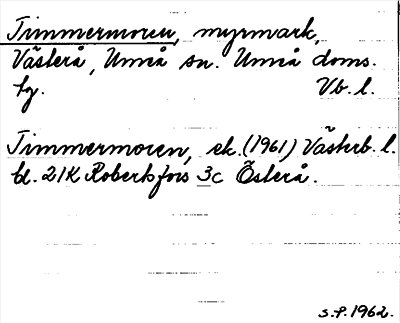 Timmermoren, myrmark,
Västerå, Umeå sn. Umeå doms.
fg. Vb. l.
Timmermoren, ek. (1961) Västerb. l.
bl. 21K Robertsfors 3c Österå.
s.f. 1962.